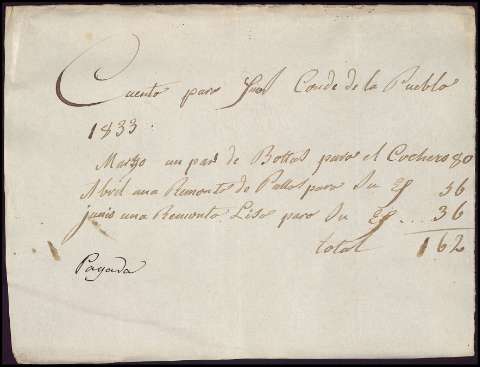 Cuenta para Conde de la Puebla
1833
Marzo un par de Bottas para el Cochero 80
Abril una Remonta de para Su Eª 36
junio una Remonta Lisa para Su Eª ... 36
total 162
Pagada